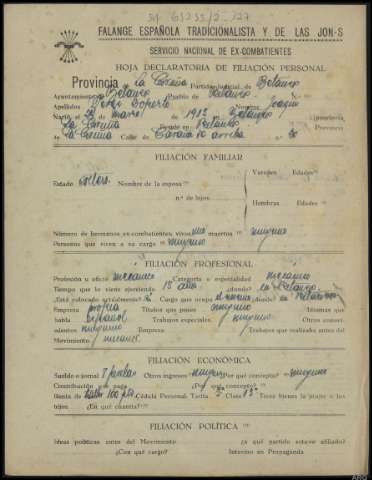 FALANGE ESPAÑOLA TRADICIONALISTA Y DE LAS JON-S
SERVICIO NACIONAL DE EX-COMBATIENTES
HOJA DECLARATORIA DE FILIACIÓN PERSONAL
Provincia de La Coruña Partido judicial de Betanzos
Ayuntamiento Betanzos Pueblo de Betanzos
Apellidos Nombre Joaquin
Nació el de de 1912 Betanzos
La Coruña Reside en Betanzos Provincia
de La Coruña Calle de n.º 30
FILIACIÓN FAMILIAR
Estado soltero Nombre de la esposa
n.º de hijos
Varones Edades
Hembras Edades
Número de hermanos ex-combatientes vivos uno muertos ninguno
Personas que viven a su cargo ninguno
FILIACIÓN PROFESIONAL
Profesión u oficio mecanico Categoría o especialidad mecanico
Tiempo que lo viene ejerciendo 15 años ¿donde? en Betanzos
¿Está colocado actualmente? Si Cargo que ocupa el mismo ¿donde? en Betanzos
Empresa propia Títulos que posee ninguno Idiomas que
habla Español Trabajos especiales ninguno Otros conoci-
mientos ninguno Empresa Trabajos que realizaba antes del
Movimiento mecanico
FILIACIÓN ECONÓMICA
Sueldo o jornal 7 pesetas Otros ingresos ninguno ¿Por qué concepto? ninguno
Contribución que paga ¿Por qué concepto?
Renta de 100 pts Cédula Personal: Tarifa Clase 13ª Tiene bienes la mujer o los
hijos ¿En qué cuantía?
FILIACIÓN POLÍTICA
Ideas políticas antes del Movimiento ¿A qué partido estuvo afiliado?
¿Con qué cargo? Intervino en Propaganda